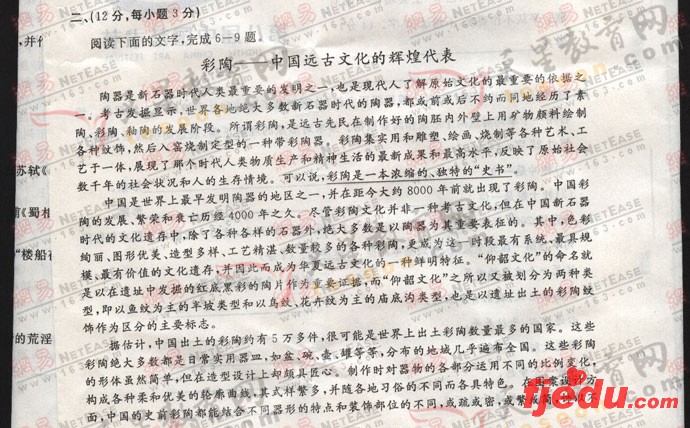 二、(12分,每小题3分)
阅读下面的文字,完成6—9题。
彩陶——中国远古文化的辉煌代表
陶器是新石器时代人类最重要的发明之一,也是现代人了解原始文化的最重要的依据之
一。考古发掘显示,世界各地绝大多数新石器时代的陶器,都或前或后不约而同地经历了素
陶、彩陶、釉陶的发展阶段。所谓彩陶,是远古先民在制作好的陶胚内外壁上用矿物颜料绘制
各种纹饰,然后入窑烧制定型的一种带彩陶器。彩陶集实用和雕塑、绘画、烧制等各种艺术、工
艺于一体,展现了那个时代人类物质生产和精神生活的最新成果和最高水平,反映了原始社会
数千年的社会状况和人的生存情境。可以说,彩陶是一本浓缩的、独特的“史书”。
中国是世界上最早发明陶器的地区之一,并在距今大约8000年前就出现了彩陶。中国彩
陶的发展、繁荣和衰亡历经4000年之久。尽管彩陶文化并非一种考古文化,但在中国新石器
时代的文化遗存中,除了各种各样的石器外,绝大多数是以陶器为其重要表征的。其中,色彩
绚丽、图形优美、造型多样、工艺精湛、数量较多的各种彩陶,更成为这一时段最有系统、最具规
模、最有价值的文化遗存,并因此而成为华夏远古史化的一种鲜明特征。“仰韶文化”的命名就
是以在遗址中发掘的红底黑彩的陶片作为重要证据,而“仰韶文化”之所以又被划分为两种类
型,即以鱼纹为主的半坡类型和以鸟纹、花卉纹为主的庙底沟类型,也是以遗址出土的彩陶纹
饰作为区分的主要标志。
据估计,中国出土的彩陶约有5万多件,很可能是世界上出土彩陶数量最多的国家。这些
彩陶绝大多数都是日常实用器皿,如盆、碗、壶、罐等等,分布的地域几乎遍布全国。这些彩陶
的形体虽然简单,但在造型设计上却颇具匠心。制作时对器物的各部分运用不同的比例变化,
构成各种柔和优美的轮廓曲线,其式样繁多,并随各地习俗的不同而各具特色。在图案设计方
面,中国的史前彩陶都能结合不同器形的特点和装饰部位的不同,或疏或密,或繁或简
,并作
苏轼《
《蜀相
“楼船
的荒淫
网易 NETEASE
163.com
教育网
fjedu.com